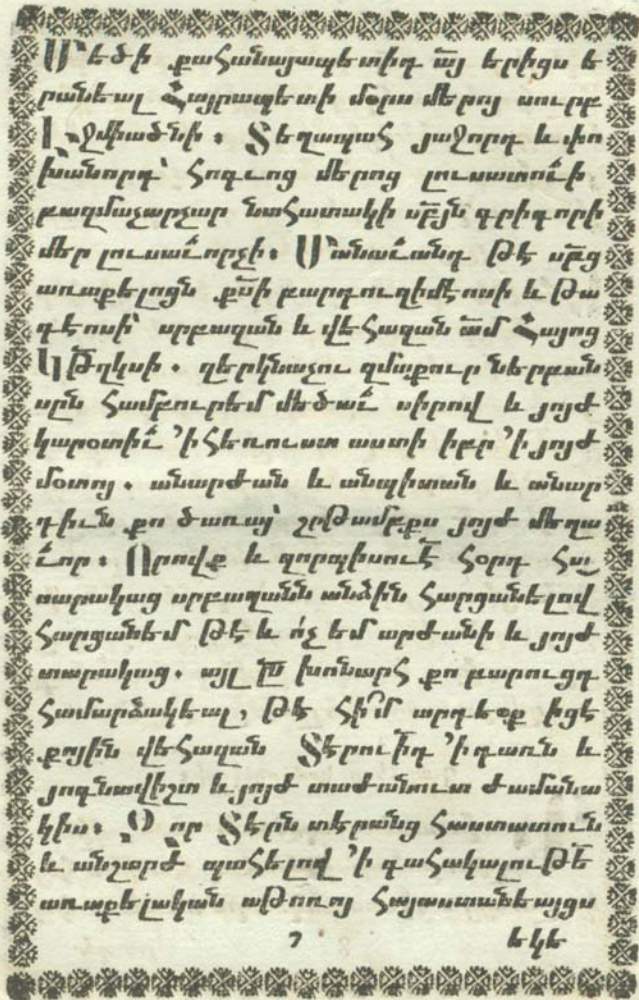 Մեծի քահանայապետիդ այ երիցս ե
րանեալ Հայրապետի մօրս մերոյ սուրբ
Էջմիածնի։ Տեղապահ յաջորդ և փո
խանորդ՝ հոգւոց մերոց լուսատուի
բազմաչարչար նահատակի սրբյն գրիգորի
մեր լուսաւորչի։ Մանաւանդ թէ սրբց
առաքելոցն քսի բարդուղիմէոսի և թա
դէոսի՝ սրբազան և վեհազան ամ Հայոց
Կթղկսի. զերկնաչու զմաքուր ներբան
սրն համբուրեմ մեծաւ սիրով և յոյժ
կարօտիւ ՚ի հեռուստ աստի իբր ՚ի յոյժ
մօտոյ. անարժան և անպիտան և անար
դիւն քո ծառայ՝ շրթամբքս յոյժ մեղա
ւոր։ Որովք և զորպիսուէ հօրդ հա
սարակաց սրբազանն անձին հարցանելով
հարցանեմ թէ և ոչ եմ արժանի և յոյժ
տարակաց. այլ ի խոնարհ քո բարուցդ
համարձակեալ, թէ հիմ արդեօք իցէ
քոյին վեհազան Տէրուիդ ՚ի դառն և
յոգնավիշտ և յոյժ տաժանուտ ժամանա
կիս։ Զոր Տէրն տէրանց հաստատուն
և անշարժ պահելով ՚ի գահակալութե
առաքելական աթոռոյ Հայաստանեայցս
7 եկե